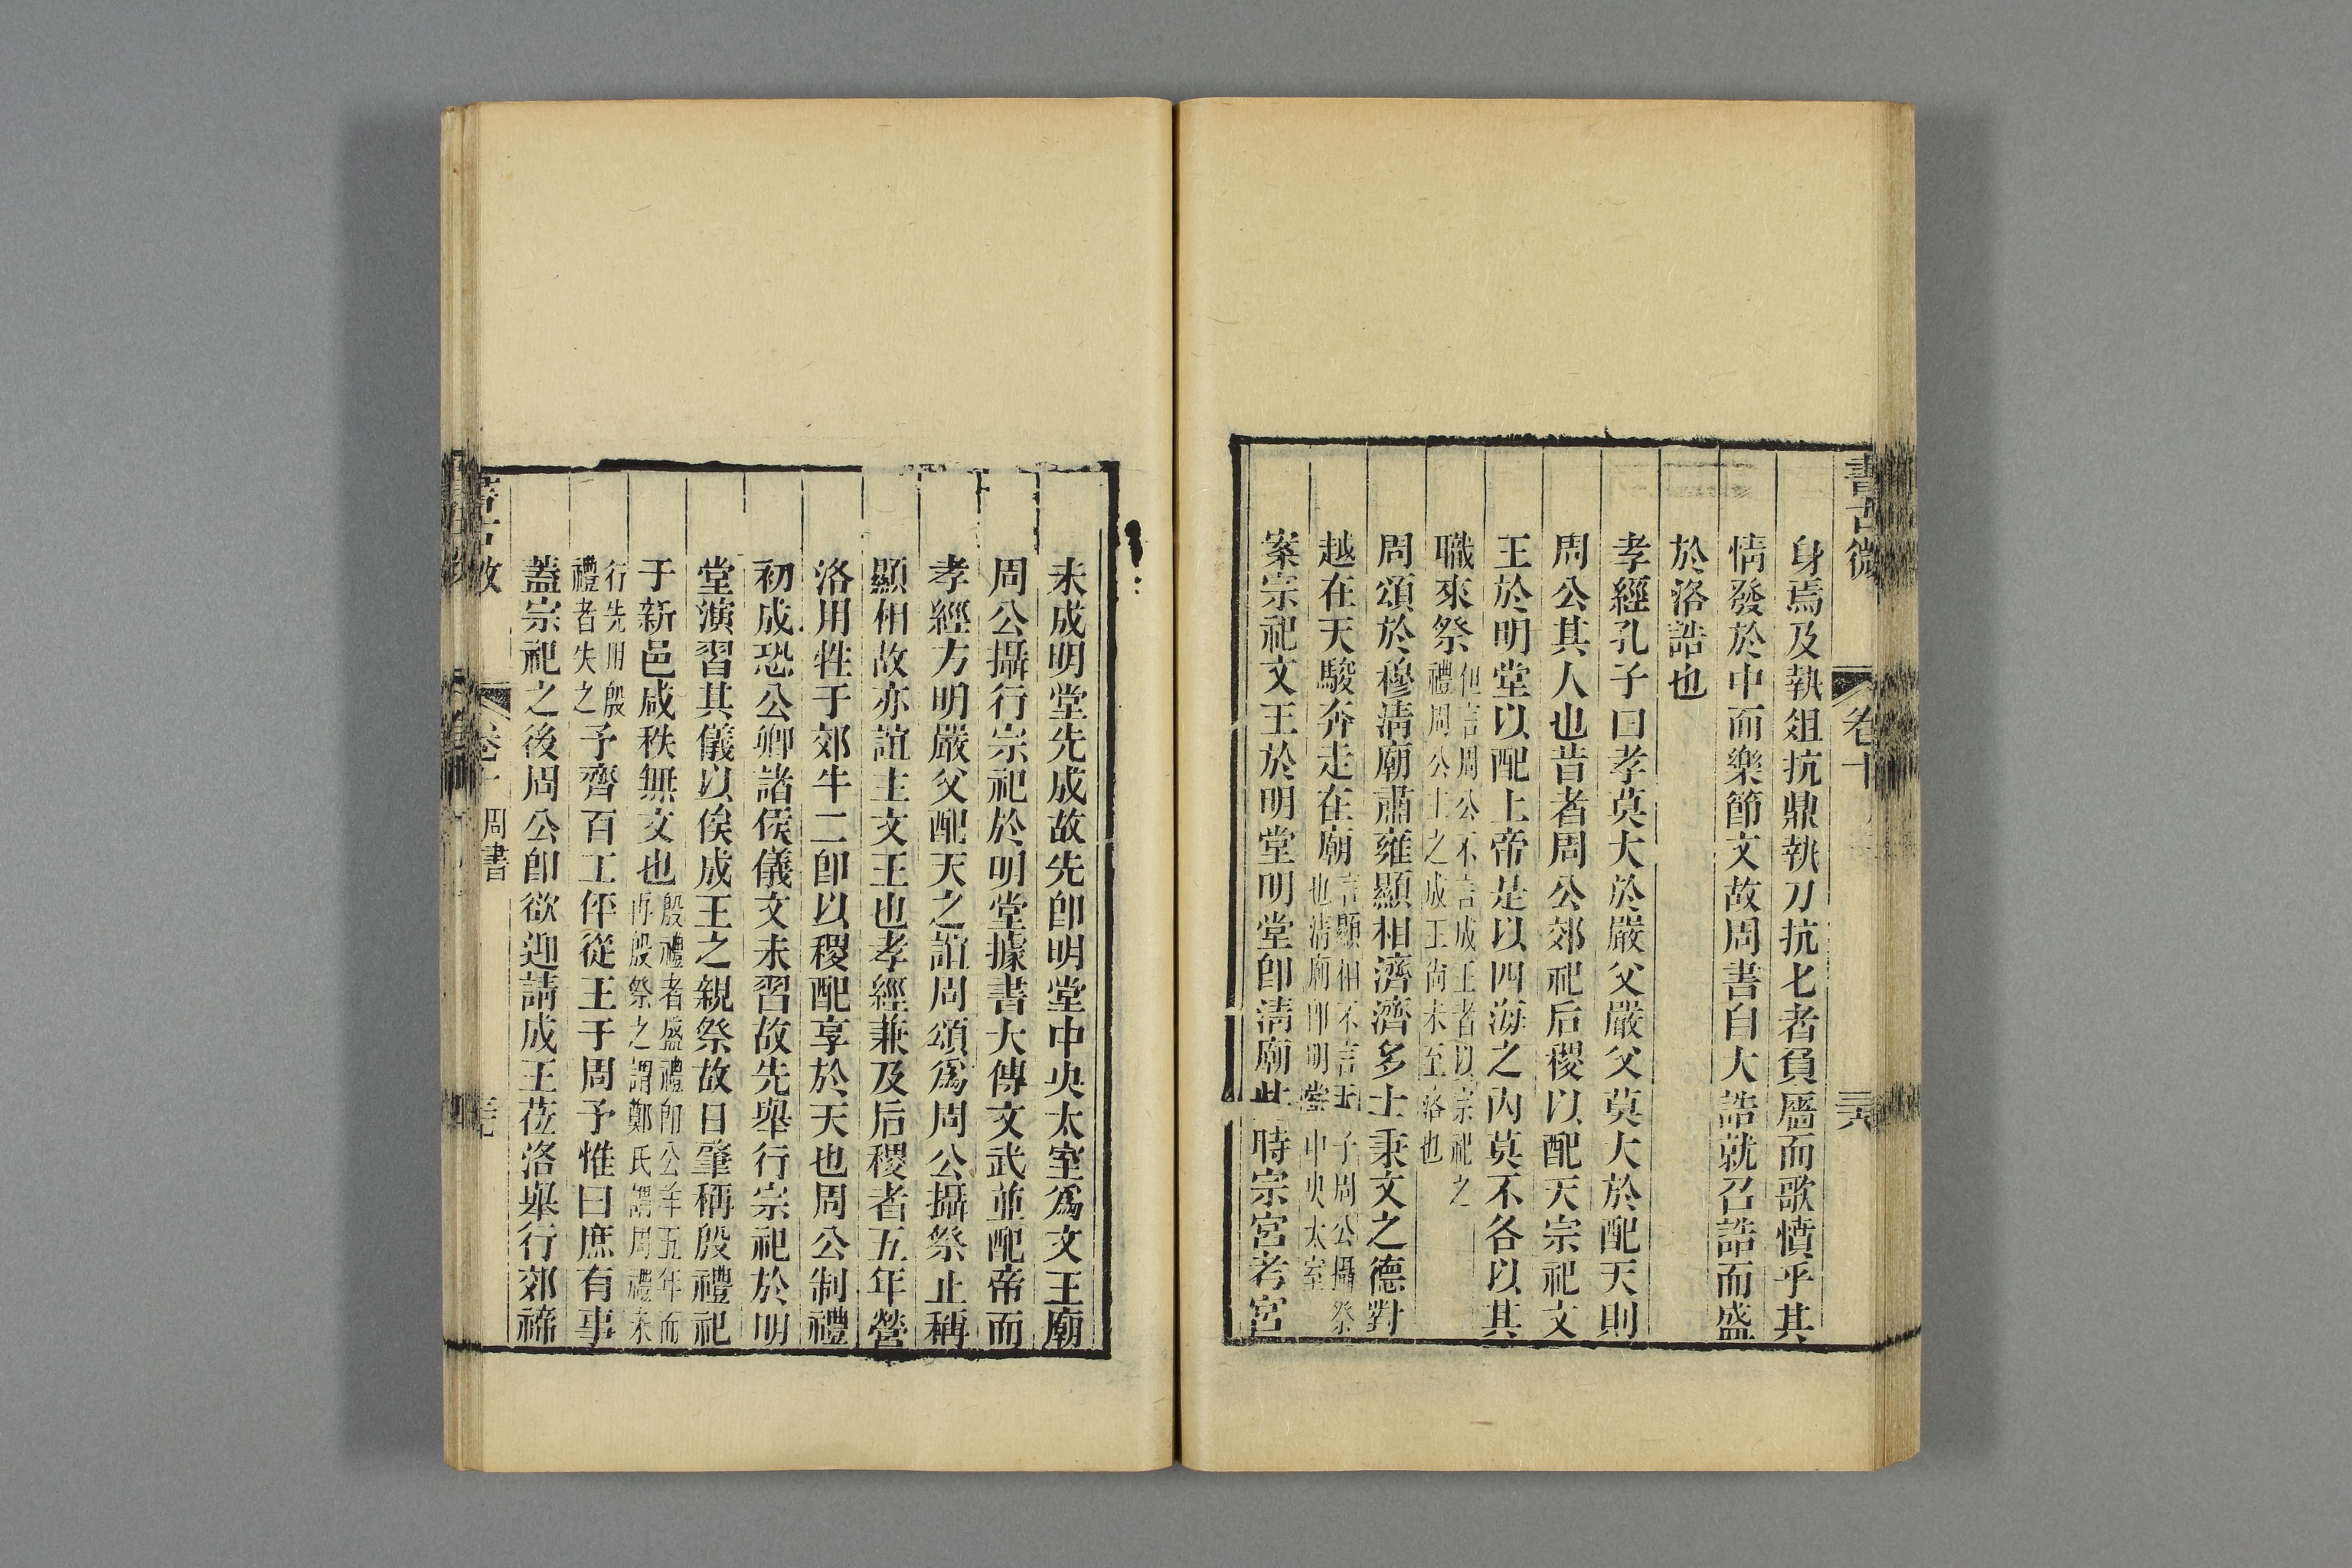 書古微 卷十 三六
身焉及執俎抗鼎執刀抗匕者負廧而歌憤乎其
情發於中而樂節文故周書自大誥就召誥而盛
於洛誥也
孝經孔子曰孝莫大於嚴父嚴父莫大於配天則
周公其人也昔者周公郊祀后稷以配天宗祀文
王於明堂以配上帝是以四海之內莫不各以其
職來祭但言周公不言成王者以宗祀之禮周公主之成王尚未至洛也
周頌於穆清廟肅雍顯相濟濟多士秉文之德對
越在天駿奔走在廟言顯相不言天子周公攝祭也清廟卽明堂中央太室
案宗祀文王於明堂明堂卽清廟此時宗宮考宮
未成明堂先成故先卽明堂中央太室爲文王廟
周公攝行宗祀於明堂據書大傳文武並配帝而
孝經方明嚴父配天之誼周頌爲周公攝祭止稱
顯相故亦誼主文王也孝經兼及后稷者五年營
洛用牲于郊牛二卽以稷配享於天也周公制禮
初成恐公卿諸侯儀文未習故先舉行宗祀於明
堂演習其儀以俟成王之親祭故曰肇稱殷禮祀
于新邑咸秩無文也殷禮者盛禮卽公羊五年而再殷祭之謂鄭氏謂周禮未
行先用殷禮者失之予齊百工伻從王于周予惟曰庶有事
蓋宗祀之後周公卽欲迎請成王莅洛舉行郊禘
卷十 周書